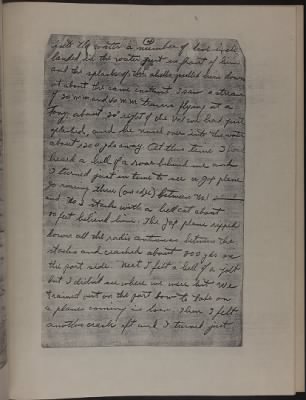 with a number of live
landed in the water just in front of him
and the splashes of the shells pulled him down
at about the same instant I saw a stream
of 20 mm and 40 mm tracers flying at a
Tony about 20° right of the Val we had just
splashed, and he nosed over into the water
about 1200 yds away. At this time I
heard a hell of a roar behind me and
I turned just in time to see a Jap plane
go roaring thru (on edge) between No 1
and No 2 stack with a hellcat about
50 feet behind him. The Jap plane ripped
down all the radio antennas between the
stacks and crashed about 200 yds on
the port side. Next I felt a hell of a jolt
but I didn't see where we were hit. We
trained out on the port bow to take on
a plane coming in low. Then I felt
another crash aft and I turned just